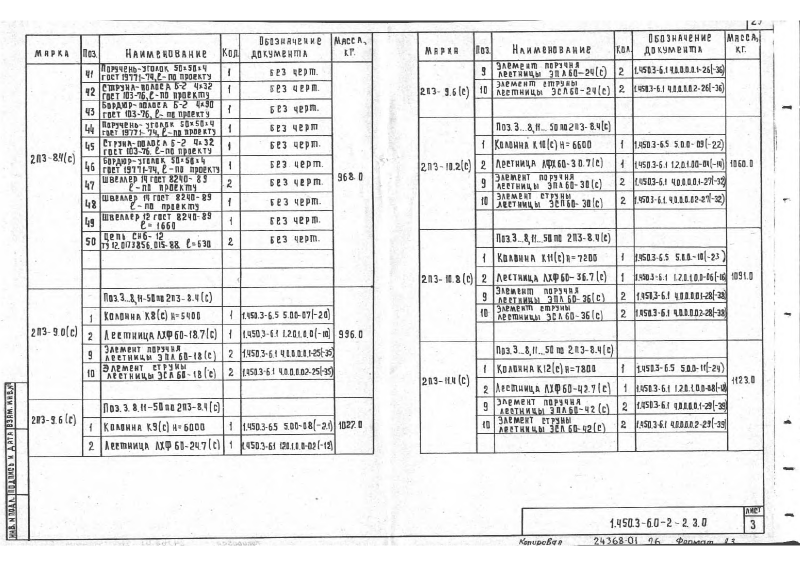 23
МАРКА ПОЗ. НАИМЕНОВАНИЕ КОЛ. ОБОЗНАЧЕНИЕ ДОКУМЕНТА МАССА, КГ.
2ПЗ-8.4(С) 968.0
41 Поручень-уголок 50×50×4 ГОСТ 19771-74, ℓ-по проекту 1 Без черт.
42 Струна-полоса Б-2 4×32 ГОСТ 103-76, ℓ-по проекту 1 Без черт.
43 Бордюр-полоса Б-2 4×90 ГОСТ 103-76, ℓ-по проекту 1 Без черт.
44 Поручень-уголок 50×50×4 ГОСТ 19771-74, ℓ-по проекту 1 Без черт.
45 Струна-полоса Б-2 4×32 ГОСТ 103-76, ℓ-по проекту 1 Без черт.
46 Бордюр-уголок 50×50×4 ГОСТ 19771-74, ℓ-по проекту 1 Без черт.
47 Швеллер 14 ГОСТ 8240-89 ℓ-по проекту 2 Без черт.
48 Швеллер 14 ГОСТ 8240-89 ℓ-по проекту 1 Без черт.
49 Швеллер 12 ГОСТ 8240-89 ℓ=1660 1 Без черт.
50 Цепь СН6-12 ℓ=630 2 Без черт.
2ПЗ-9.0(С) 996.0
Поз.3...8,11-50 по 2ПЗ-8.4(С)
1 Колонна К8(С) Н=5400 1 1.450.3-6.5 5.0.0-07(-20)
2 Лестница ЛХФ60-18.7(С) 1 1.450.3-6.1 1.2.0.1.0.0(-10)
9 Элемент поручня лестницы ЭПЛ60-18(С) 2 1.450.3-6.1 4.0.0.0.0.1-25(-35)
10 Элемент струны лестницы ЭСЛ60-18(С) 2 1.450.3-6.1 4.0.0.0.0.2-25(-35)
2ПЗ-9.6(С) 1022.0
Поз.3...8,11-50 по 2ПЗ-8.4(С)
1 Колонна К9(С) Н=6000 1 1.450.3-6.5 5.0.0-08(-21)
2 Лестница ЛХФ60-24.7(С) 1 1.450.3-6.1 1.2.0.1.0.0-02(-12)
МАРКА ПОЗ. НАИМЕНОВАНИЕ КОЛ. ОБОЗНАЧЕНИЕ ДОКУМЕНТА МАССА, КГ.
2ПЗ-9.6(С)
9 Элемент поручня лестницы ЭПЛ60-24(С) 2 1.450.3-6.1 4.0.0.0.0.1-26(-36)
10 Элемент струны лестницы ЭСЛ60-24(С) 2 1.450.3-6.1 4.0.0.0.0.2-26(-36)
2ПЗ-10.2(С) 1060.0
Поз.3...8,11...50 по 2ПЗ-8.4(С)
1 Колонна К10(С) Н=6600 1 1.450.3-6.5 5.0.0-09(-22)
2 Лестница ЛХФ60-30.7(С) 1 1.450.3-6.1 1.2.0.1.0.0-04(-14)
9 Элемент поручня лестницы ЭПЛ60-30(С) 2 1.450.3-6.1 4.0.0.0.0.1-27(-37)
10 Элемент струны лестницы ЭСЛ60-30(С) 2 1.450.3-6.1 4.0.0.0.0.2-27(-37)
2ПЗ-10.8(С) 1091.0
Поз.3...8,11...50 по 2ПЗ-8.4(С)
1 Колонна К11(С) Н=7200 1 1.450.3-6.5 5.0.0-10(-23)
2 Лестница ЛХФ60-36.7(С) 1 1.450.3-6.1 1.2.0.1.0.0-06(-16)
9 Элемент поручня лестницы ЭПЛ60-36(С) 2 1.450.3-6.1 4.0.0.0.0.1-28(-38)
10 Элемент струны лестницы ЭСЛ60-36(С) 2 1.450.3-6.1 4.0.0.0.0.2-28(-38)
2ПЗ-11.4(С) 1123.0
Поз.3...8,11...50 по 2ПЗ-8.4(С)
1 Колонна К12(С) Н=7800 1 1.450.3-6.5 5.0.0-11(-24)
2 Лестница ЛХФ60-42.7(С) 1 1.450.3-6.1 1.2.0.1.0.0-08(-18)
9 Элемент поручня лестницы ЭПЛ60-42(С) 2 1.450.3-6.1 4.0.0.0.0.1-29(-39)
10 Элемент струны лестницы ЭСЛ60-42(С) 2 1.450.3-6.1 4.0.0.0.0.2-29(-39)
ИНВ.N ПОДЛ. ПОДПИСЬ И ДАТА ВЗАМ.ИНВ.N
1.450.3-6.0-2-2.3.0
ЛИСТ
3
Копировал 24368-01 26 Формат А3